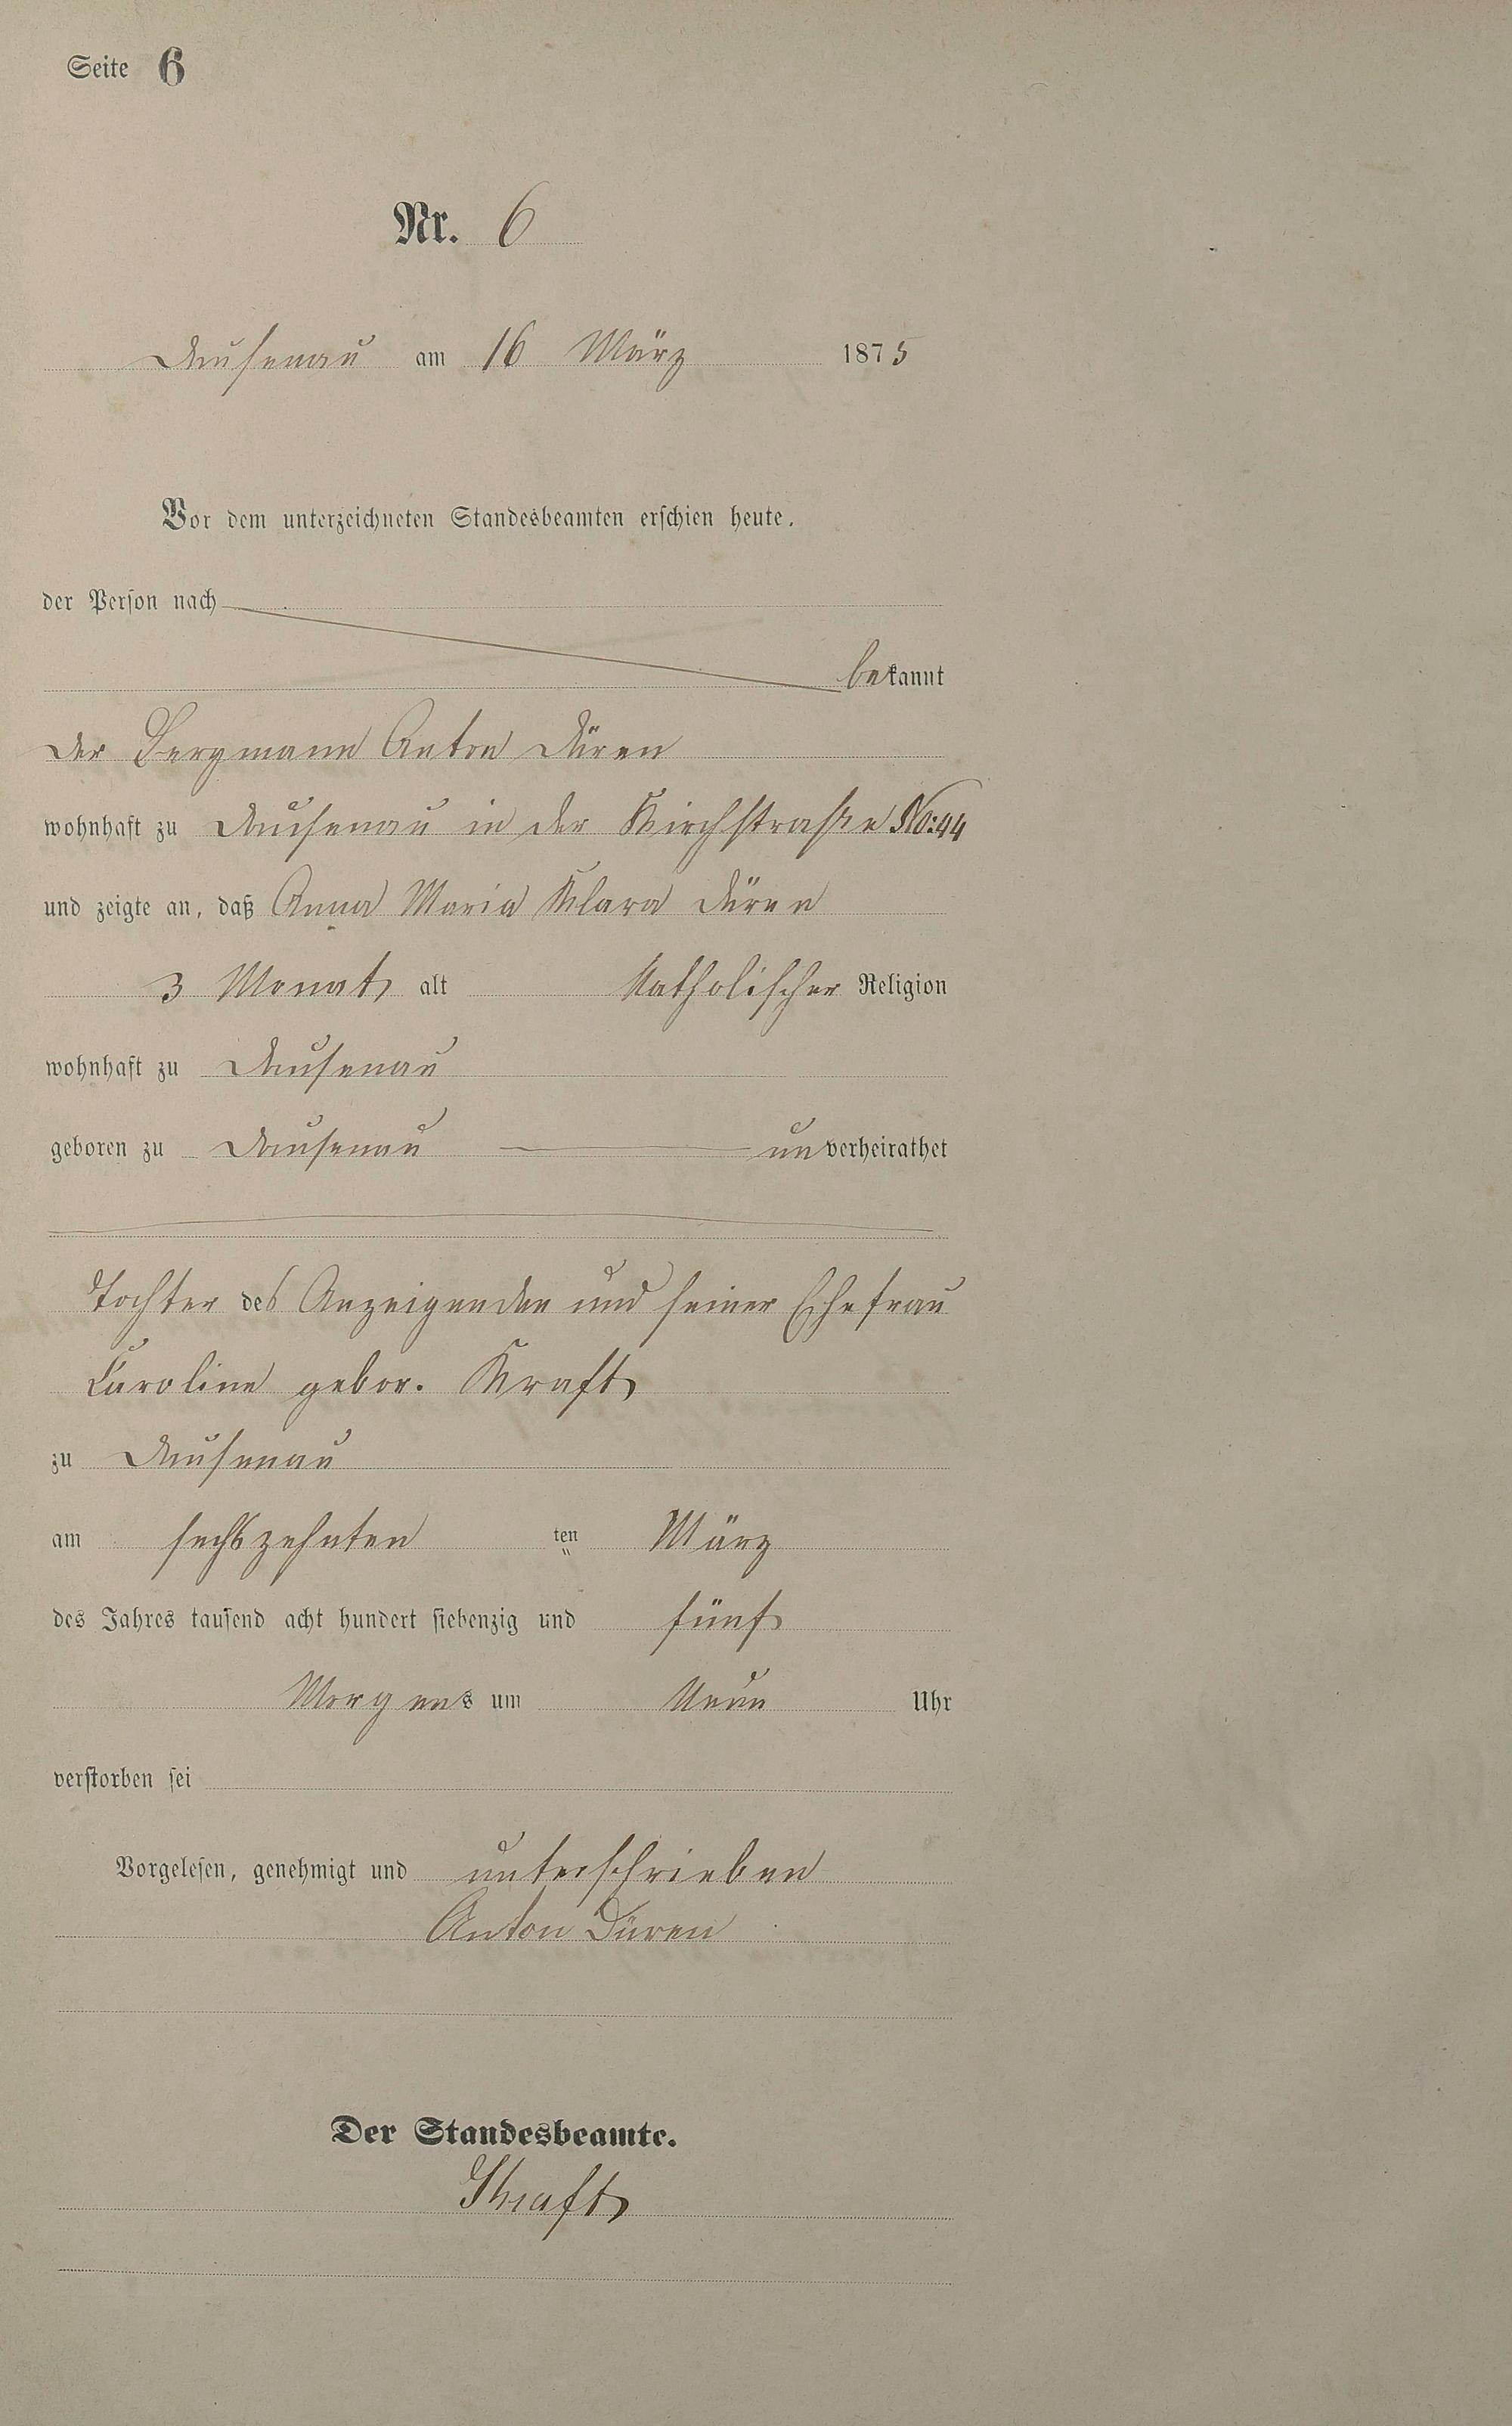 Seite 6
Nr. 6
Dausenau am 16 März 1875
Vor dem unterzeichneten Standesbeamten erschien heute,
der Person nach
bekannt
der Bergmann Anton Düren
wohnhaft zu Dausenau in der Kirchstraße No: 44
und zeigte an, daß Anna Maria Klara Düren
3 Monat alt Katholischer Religion
wohnhaft zu Dausenau
geboren zu Dausenau unverheirathet
Tochter des Anzeigenden und seiner Ehefrau
Caroline gebor. Kraft
zu Dausenau
am sechszehnten ten März
des Jahres tausend acht hundert siebenzig und fünf
Morgens um Neun Uhr
verstorben sei
Vorgelesen, genehmigt und unterschrieben
Anton Düren
Der Standesbeamte.
Kraft